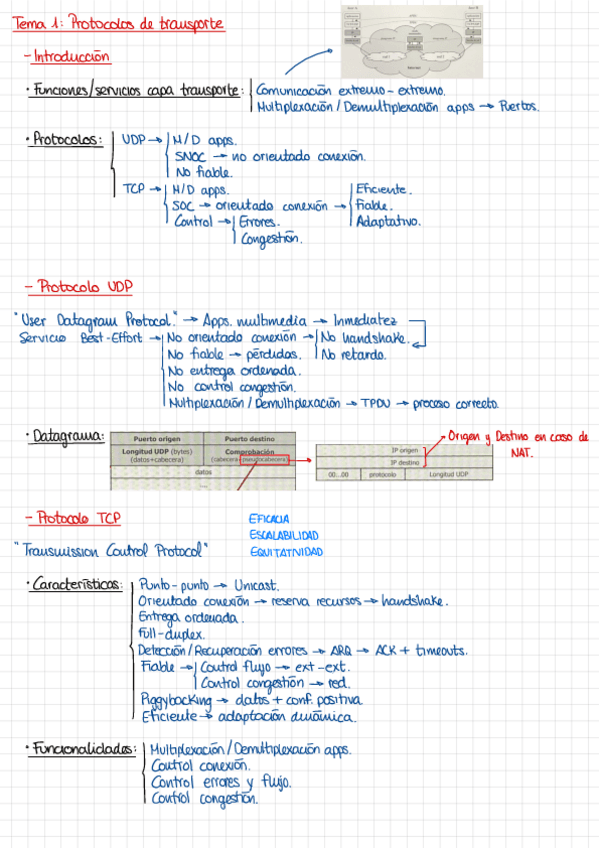 Tema 1: Protocolos de transporte
- Introducción
· Funciones/servicios capa transporte: Comunicación extremo-extremo.
Multiplexación/Demultiplexación apps → Puertos.
· Protocolos: UDP → M/D apps.
SNOC → no orientado conexión.
No fiable.
TCP → M/D apps. Eficiente.
SOC → orientado conexión → Fiable.
Control → Errores. Adaptativo.
Congestión.
- Protocolo UDP
"User Datagram Protocol." → Apps. multimedia → Inmediatez
Servicio Best-Effort → No orientado conexión → No handshake.
No fiable → pérdidas. No retardo.
No entrega ordenada.
No control congestión.
Multiplexación/Demultiplexación → TPDU → proceso correcto.
· Datagrama: Puerto origen Puerto destino
Longitud UDP (bytes) Comprobación
(datos+cabecera) (cabecera+pseudocabecera)
datos
....
IP origen
IP destino
00...00 protocolo Longitud UDP
Origen y Destino en caso de
NAT.
- Protocolo TCP
EFICACIA
ESCALABILIDAD
EQUITATIVIDAD
"Transmission Control Protocol"
· Características: Punto-punto → Unicast.
Orientado conexión → reserva recursos → handshake.
Entrega ordenada.
Full-duplex.
Detección/Recuperación errores → ARQ → ACK + timeouts.
Fiable → Control flujo → ext-ext.
Control congestión → red.
Piggybacking → datos + conf. positiva
Eficiente → adaptación dinámica.
· Funcionalidades: Multiplexación/Demultiplexación apps.
Control conexión.
Control errores y flujo.
Control congestión.